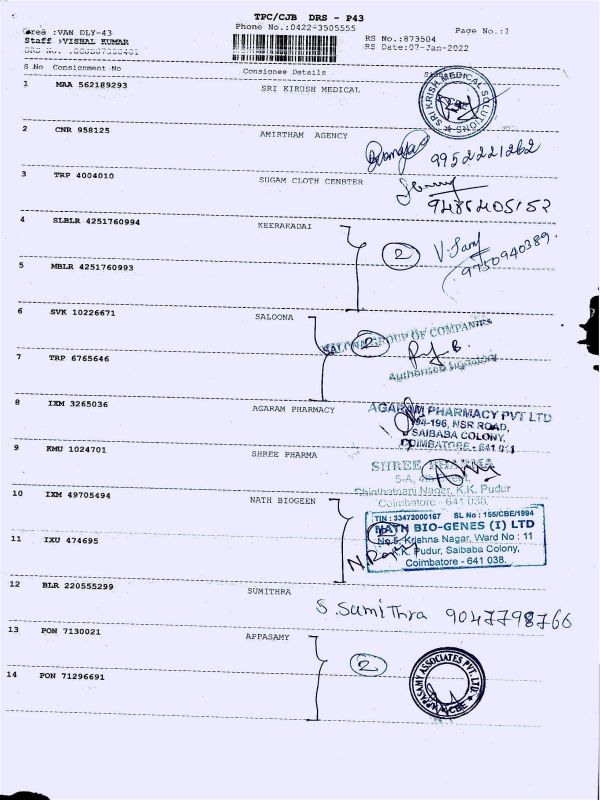 TPC/CJB DRS - P43
Area :VAN DLY-43
Phone No.:0422-3505555
Page No.:1
Staff :VISHAL KUMAR
RS No.:873504
RS Date:07-Jan-2022
S No Consignment No
Consignee Details
1 MAA 562189293 SRI KIRUSH MEDICAL
SRI KRISH MEDICAL SOLUTIONS
2 CNR 958125 AMIRTHAM AGENCY
9952221262
3 TRP 4004010 SUGAM CLOTH CENBTER
9486405152
4 SLBLR 4251760994 KEERAKADAI
2
9750940389.
5 MBLR 4251760993
6 SVK 10226671 SALOONA
SALONA GROUP OF COMPANIES
2
7 TRP 6765646
Authorised Signatory
8 IXM 3265036 AGARAM PHARMACY
AGARAM PHARMACY PVT LTD
194-196, NSR ROAD,
SAIBABA COLONY,
COIMBATORE - 641 011
9 KMU 1024701 SHREE PHARMA
SHREE PHARMA
5-A,
Chinthamani Nagar, K.K. Pudur
Coimbatore - 641 038.
10 IXM 49705494 NATH BIOGEEN
TIN : 33472000167 SL No : 155/CBE/1994
NATH BIO-GENES (I) LTD
No.5, Krishna Nagar, Ward No : 11
K.K. Pudur, Saibaba Colony,
Coimbatore - 641 038.
11 IXU 474695
12 BLR 220555299 SUMITHRA
S. Sumithra 9047798766
13 PON 7130021 APPASAMY
2
APPASAMY ASSOCIATES PVT. LTD.
CBE
14 PON 71296691